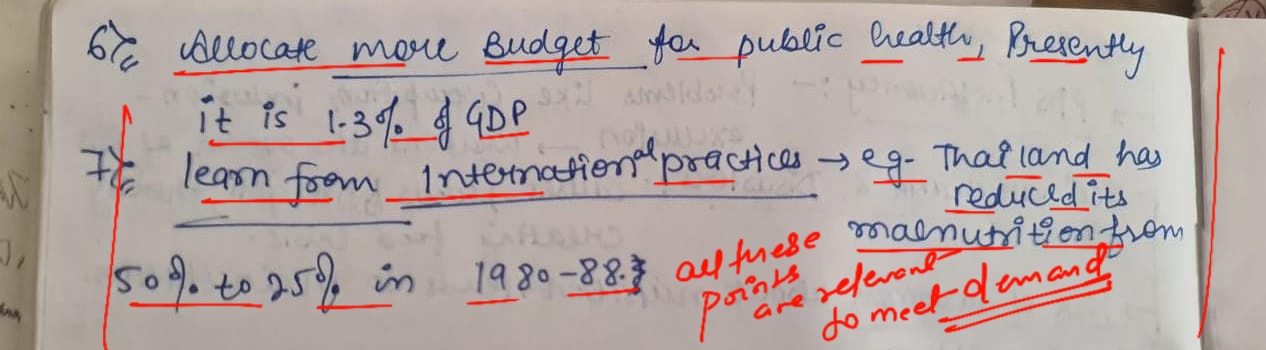 6) Allocate more Budget for public health, Presently
it is 1.3% of GDP
7) learn from International practices → eg- Thailand has
reduced its
malnutrition from
50% to 25% in 1980-88.
all these
points
are relevant
to meet demand